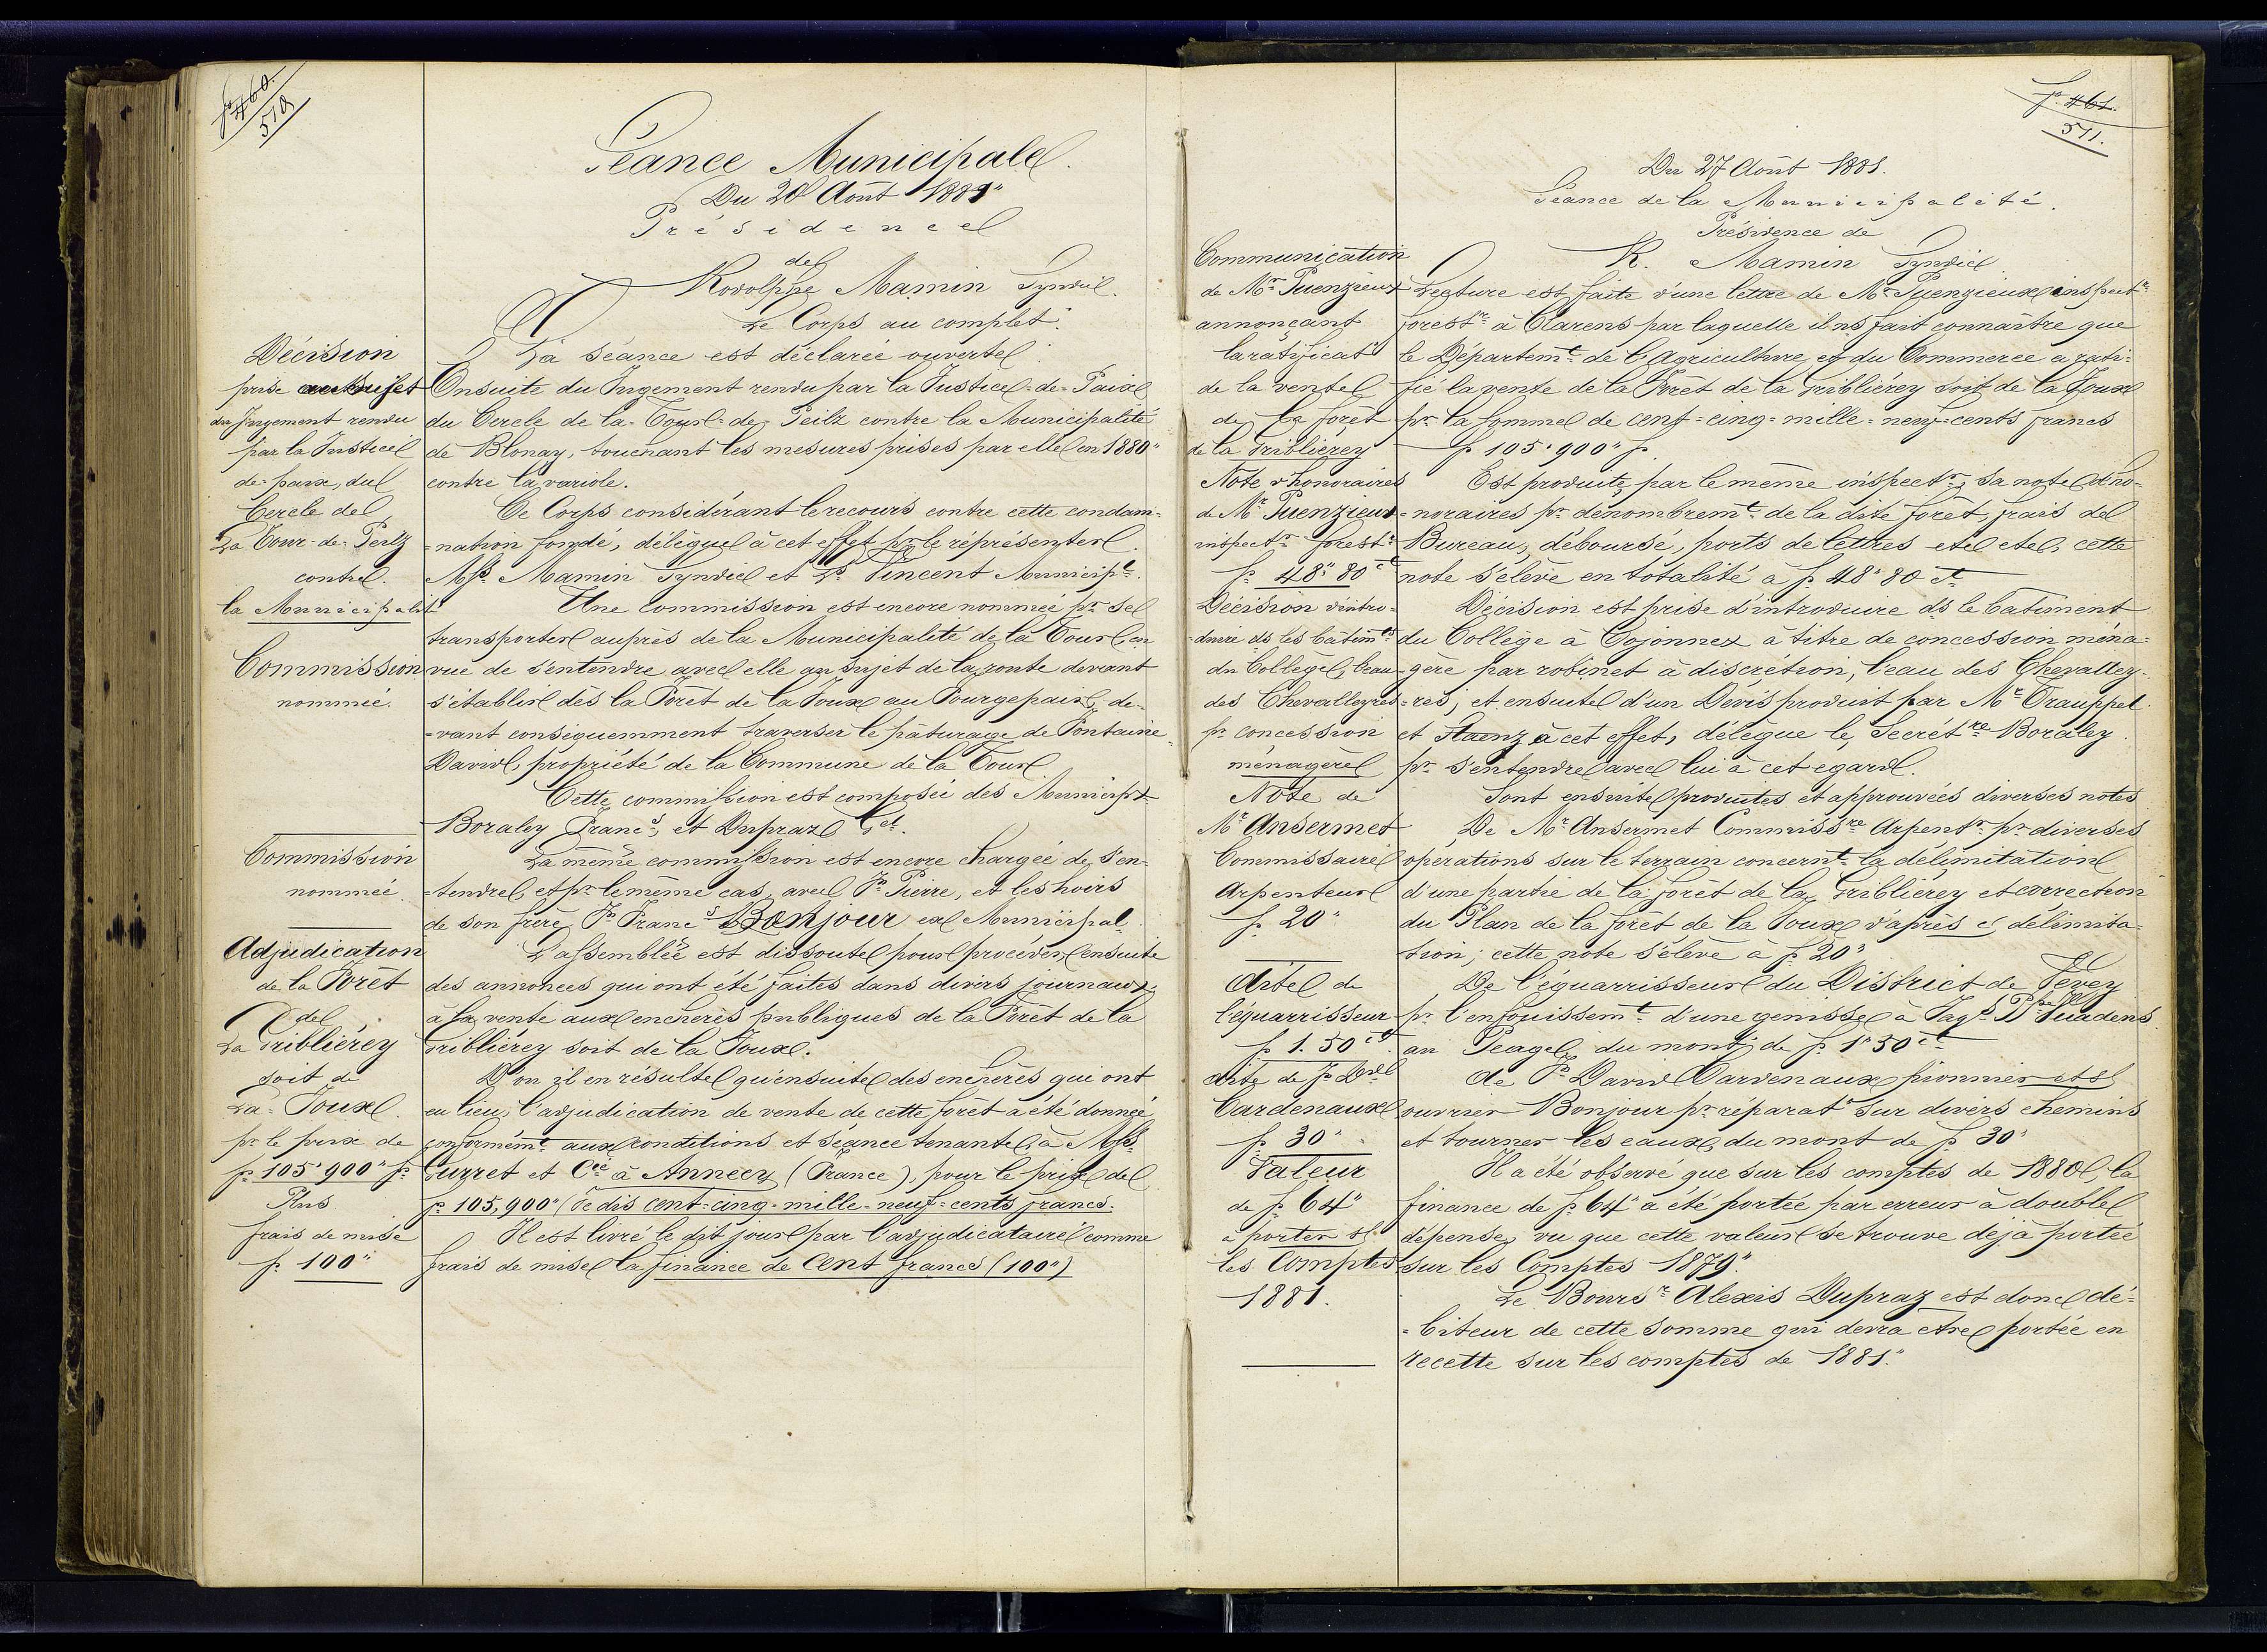 f° 460.
510
Séance Municipale.
Du 20 Août 1881"
Présidence
de
Rodolphe Mamin Syndic.
Le Corps au complet.
La séance est déclarée ouverte.
Décision
prise au sujet
du Jugement rendu
par la Justice
de paix, du
Cercle de
La Tour-de-Peilz
contre
la Municipalité
Ensuite du Jugement rendu par la Justice-de-Paix
du Cercle de la-Tour-de-Peilz contre la Municipalité
de Blonay, touchant les mesures prises par elle en 1880"
contre la variole.
Ce Corps considérant le recours contre cette condam-
-nation fondé, délègue à cet effet pr le réprésenter
Mss. Mamin Syndic et Ls Vincent Municipl.
Commission
nommée.
Une commission est encore nommée pr se
transporter auprès de la Municipalité de la Tour en
vue de s'entendre avec elle au sujet de la route devant
s'établir dès la Forêt de la Joux au Pourgepair, de-
-vant conséquemment traverser le pâturage de Fontaine
David, propriété de la Commune de la Tour
Cette commission est composée des Municipx
Boraley Francs, et Dupraz Gel.
Commission
nommée.
La même commission est encore chargée de s'en-
-tendre, et pr le même cas, avec Jn Pierre, et les hoirs
de son frère, Jn Francs Bonjour ex Municipal.
Adjudication
de la Forêt
de
La Griblièrey
soit de
La-Joux.
pr le prix de
fr 105'900" fr.
Plus
frais de mise
fr. 100"
L'assemblée est dissoute pour procéder ensuite
des annonces qui ont été faites dans divers journaux,
à la vente aux enchères publiques de la Forêt de la
Griblièrey soit de la Joux.
D'où il en résulte qu'ensuite des enchères qui ont
eu lieu, l'adjudication de vente de cette forêt a été donnée
conformémt aux conditions et séance tenante, à Mss
Gurret et Cie à Annecy (France), pour le prix de
fr. 105,900" (Je dis cent-cinq-mille-neuf-cents francs.
Il est livré le dit jour par l'adjudicataire comme
frais de mise la finance de Cent francs (100")
f° 461.
511.
Du 27 Août 1881.
Séance de la Municipalité.
Présidence de
R. Mamin Syndic
Communication
de Mr Puenzieux
annonçant
la ratificatn
de la vente
de la forêt
de la Griblièrey
Lecture est faite d'une lettre de Mr Puenzieux inspectr
forestr à Clarens par laquelle il ns fait connaître que
le Départemt de l'Agriculture et du Commerce a rati-
fié la vente de la Forêt de la Griblièrey soit de la Joux
pr la somme de cent-cinq-mille-neuf-cents francs
fr 105'900" fr.
Note d'honoraires
de Mr Puenzieux
inspectr forestr
fr. 48" 80 ct
Est produite, par le même inspectr, sa note d'ho-
-noraires pr dénombremt de la dite forêt, frais de
Bureau, déboursé, ports de lettres etc etc, cette
note s'élève en totalité à fr 48" 80 ct
Décision d'intro-
-duire ds les bâtimts
du Collège, l'eau
des Chevalleyres
pr concession
ménagère
Décision est prise d'introduire ds le bâtiment
du Collège à Cojonnex à titre de concession ména-
gère par robinet à discrétion, l'eau des Chevalley-
-res; et ensuite d'un Devis produit par Mr Trauppel
et à cet effet, délègue le Secrétre Boraley
pr s'entendre avec lui à cet egard.
Note de
Mr Ansermet
Commissaire
Arpenteur
fr. 20"
Sont ensuite produites et approuvées diverses notes
De Mr Ansermet Commissre Arpentr pr diverses
opérations sur le terrain concernt la délimitation
d'une partie de la forêt de la Griblièrey et correction
du Plan de la forêt de la Joux d'après c/ délimita-
tion; cette note s'élève à fr 20"
dite de
l'équarrisseur
fr 1. 50 ct
De l'équarrisseur du District de Vevey
pr l'enfouissemt d'une génisse à Jaqs Ppe Vuadens
au Peage du mont; de fr 1" 50 ct
dite de Jn Dvd
Cardenaux
fr 30"
de Jn David Cardenaux pionnier et s/
ouvrier Bonjour pr réparatn sur divers chemins
et tourner les eaux, du mont de fr 30"
Valeur
de fr 64"
à porter s/
les Comptes
1881.
Il a été observé que sur les comptes de 1880, la
finance de fr 64" a été portée par erreur à double
dépense, vu que cette valeur se trouve déjà portée
sur les Comptes 1879".
Le Boursr Alexis Dupraz est donc dé-
-biteur de cette somme qui devra etre portée en
recette sur les comptes de 1881."